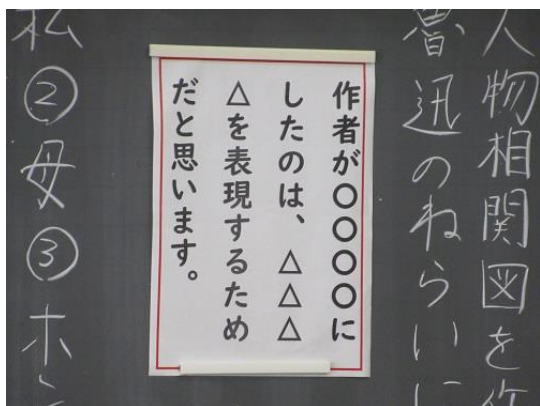 人物相関図を作
魯迅のねらいに
作者が〇〇〇〇に
したのは、△△△
△を表現するため
だと思います。
私②母③ホ